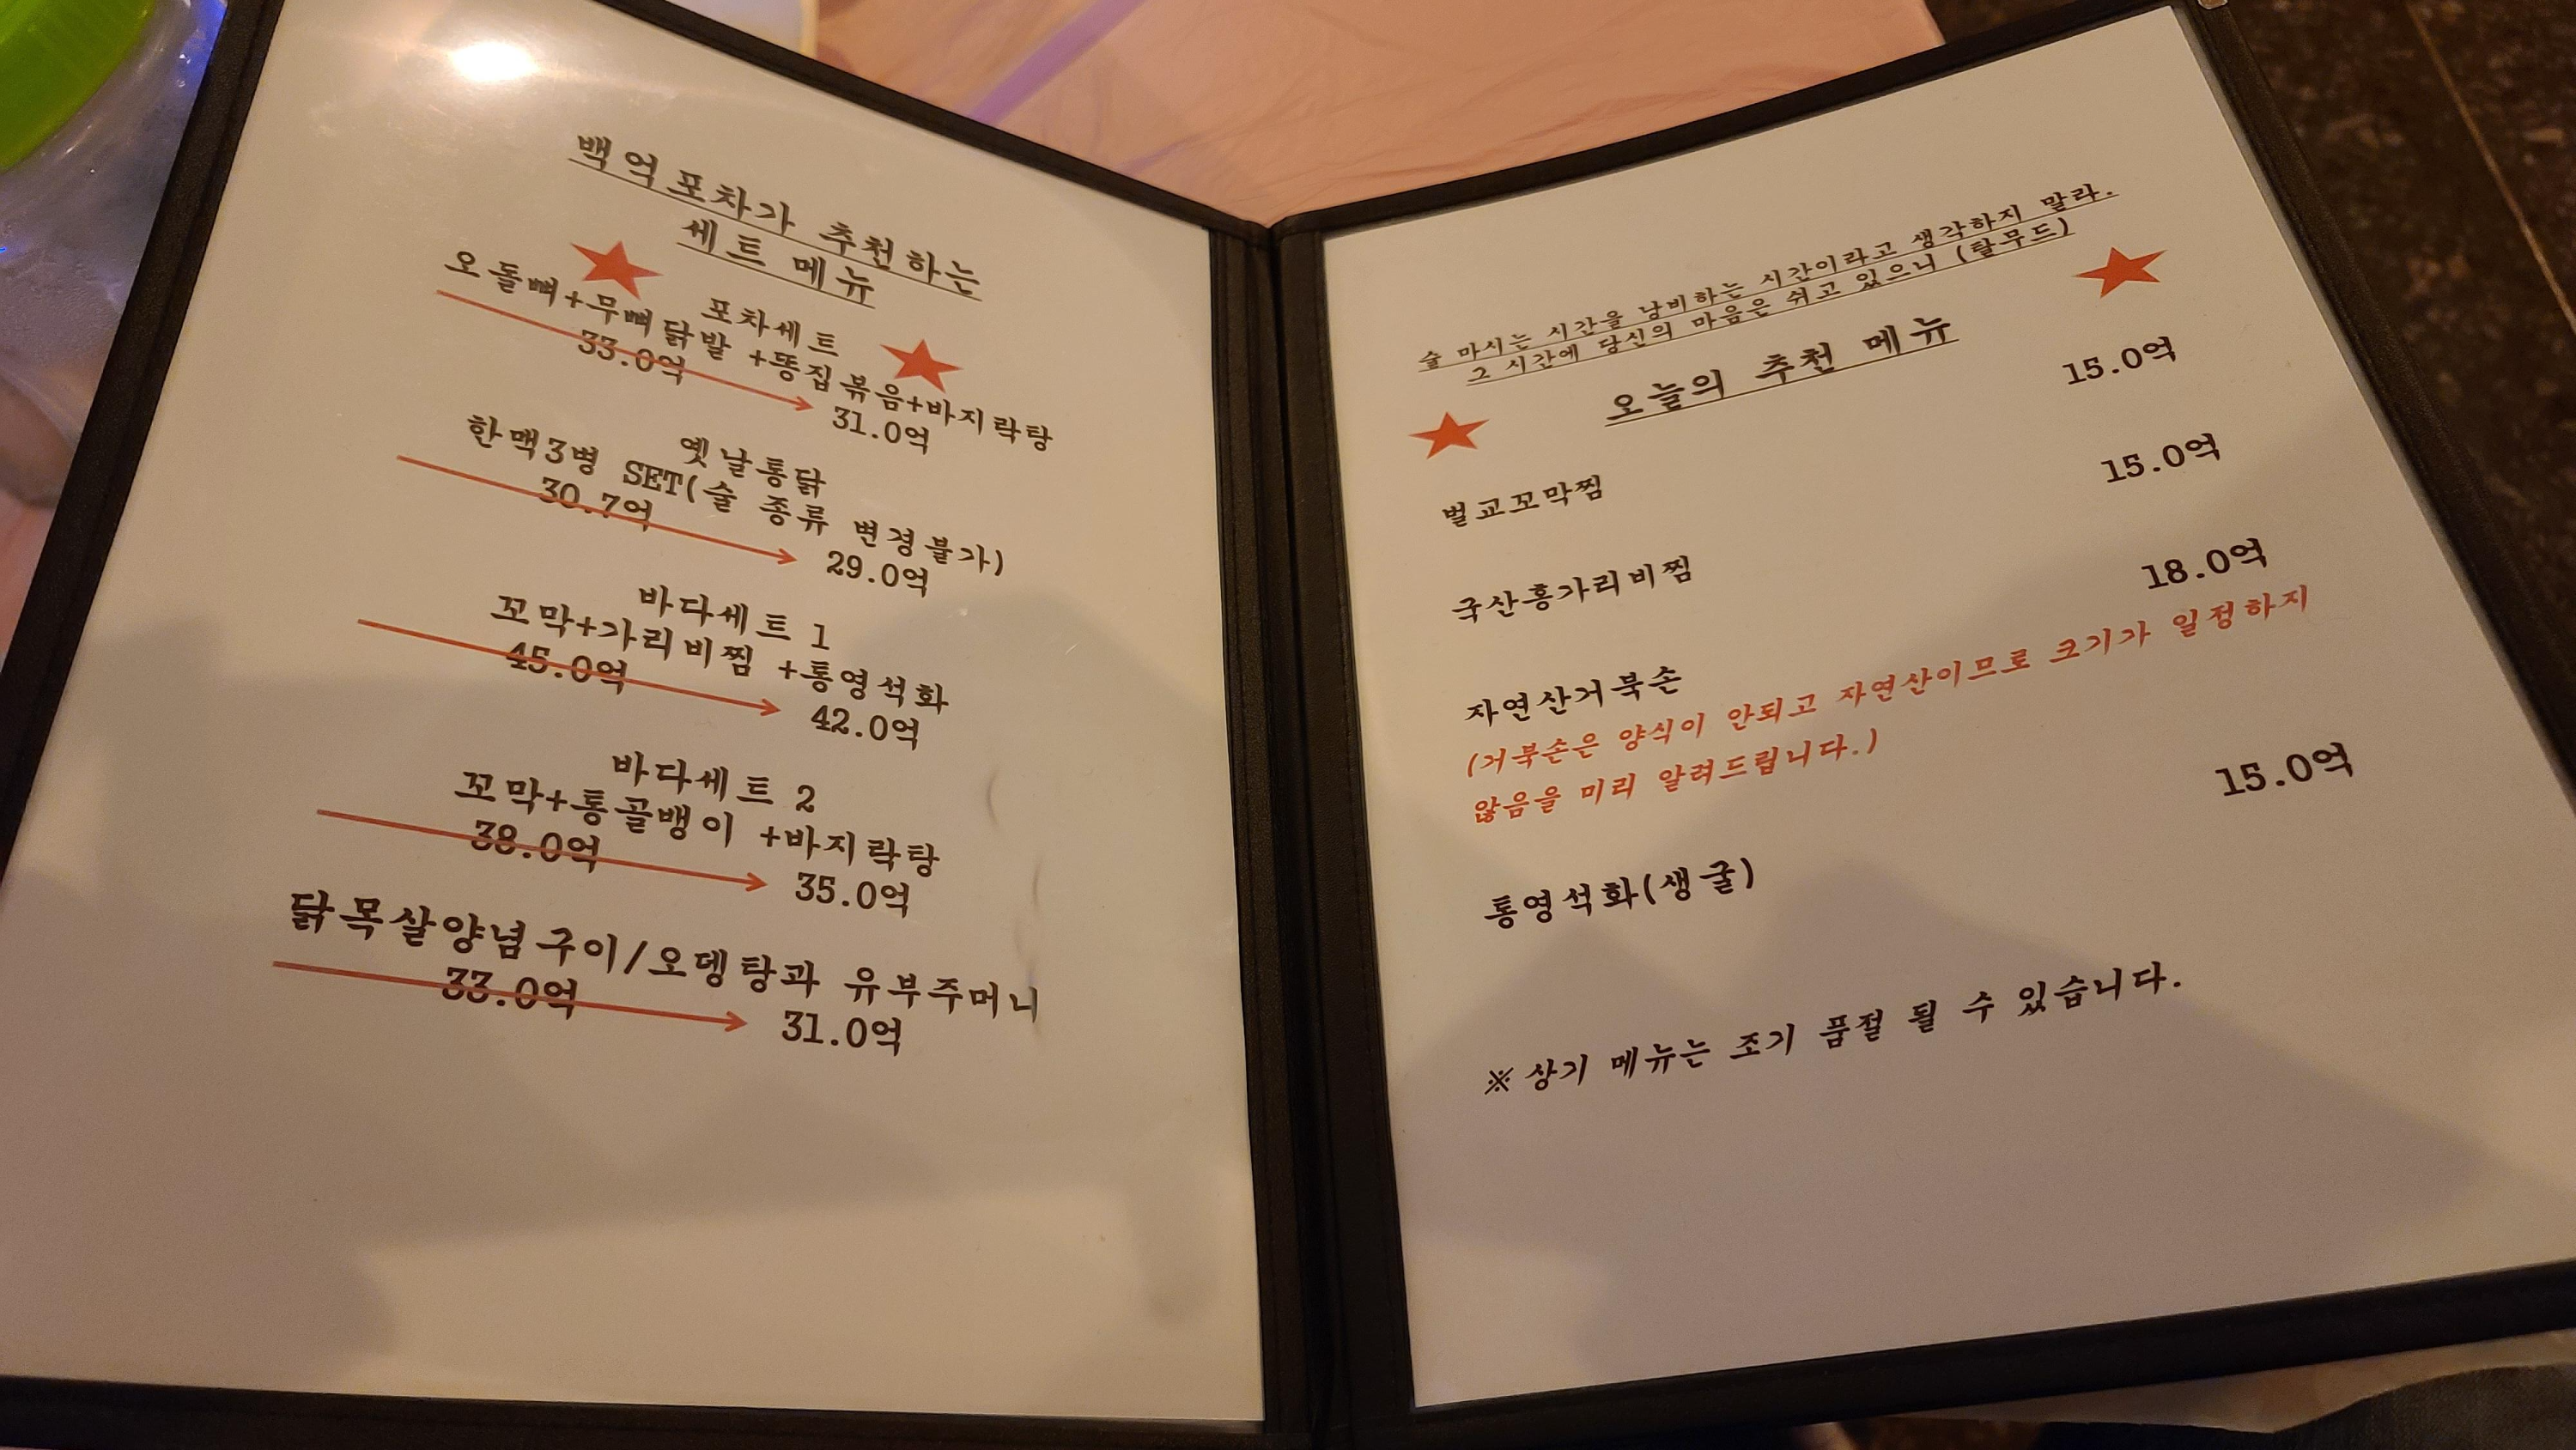 백억포차가 추천하는
세트 메뉴
포차세트
오돌뼈+무뼈닭발 +똥집볶음+바지락탕
33.0억
31.0억
옛날통닭
한맥3병 SET(술 종류 변경불가)
30.7억
29.0억
바다세트 1
꼬막+가리비찜 +통영석화
45.0억
42.0억
바다세트 2
꼬막+통골뱅이 +바지락탕
38.0억
35.0억
닭목살양념구이/오뎅탕과 유부주머니
33.0억
31.0억
술 마시는 시간을 낭비하는 시간이라고 생각하지 말라.
그 시간에 당신의 마음은 쉬고 있으니 (탈무드)
오늘의 추천 메뉴
벌교꼬막찜
15.0억
국산홍가리비찜
15.0억
자연산거북손
18.0억
(거북손은 양식이 안되고 자연산이므로 크기가 일정하지
않음을 미리 알려드립니다.)
통영석화(생굴)
15.0억
※상기 메뉴는 조기 품절 될 수 있습니다.